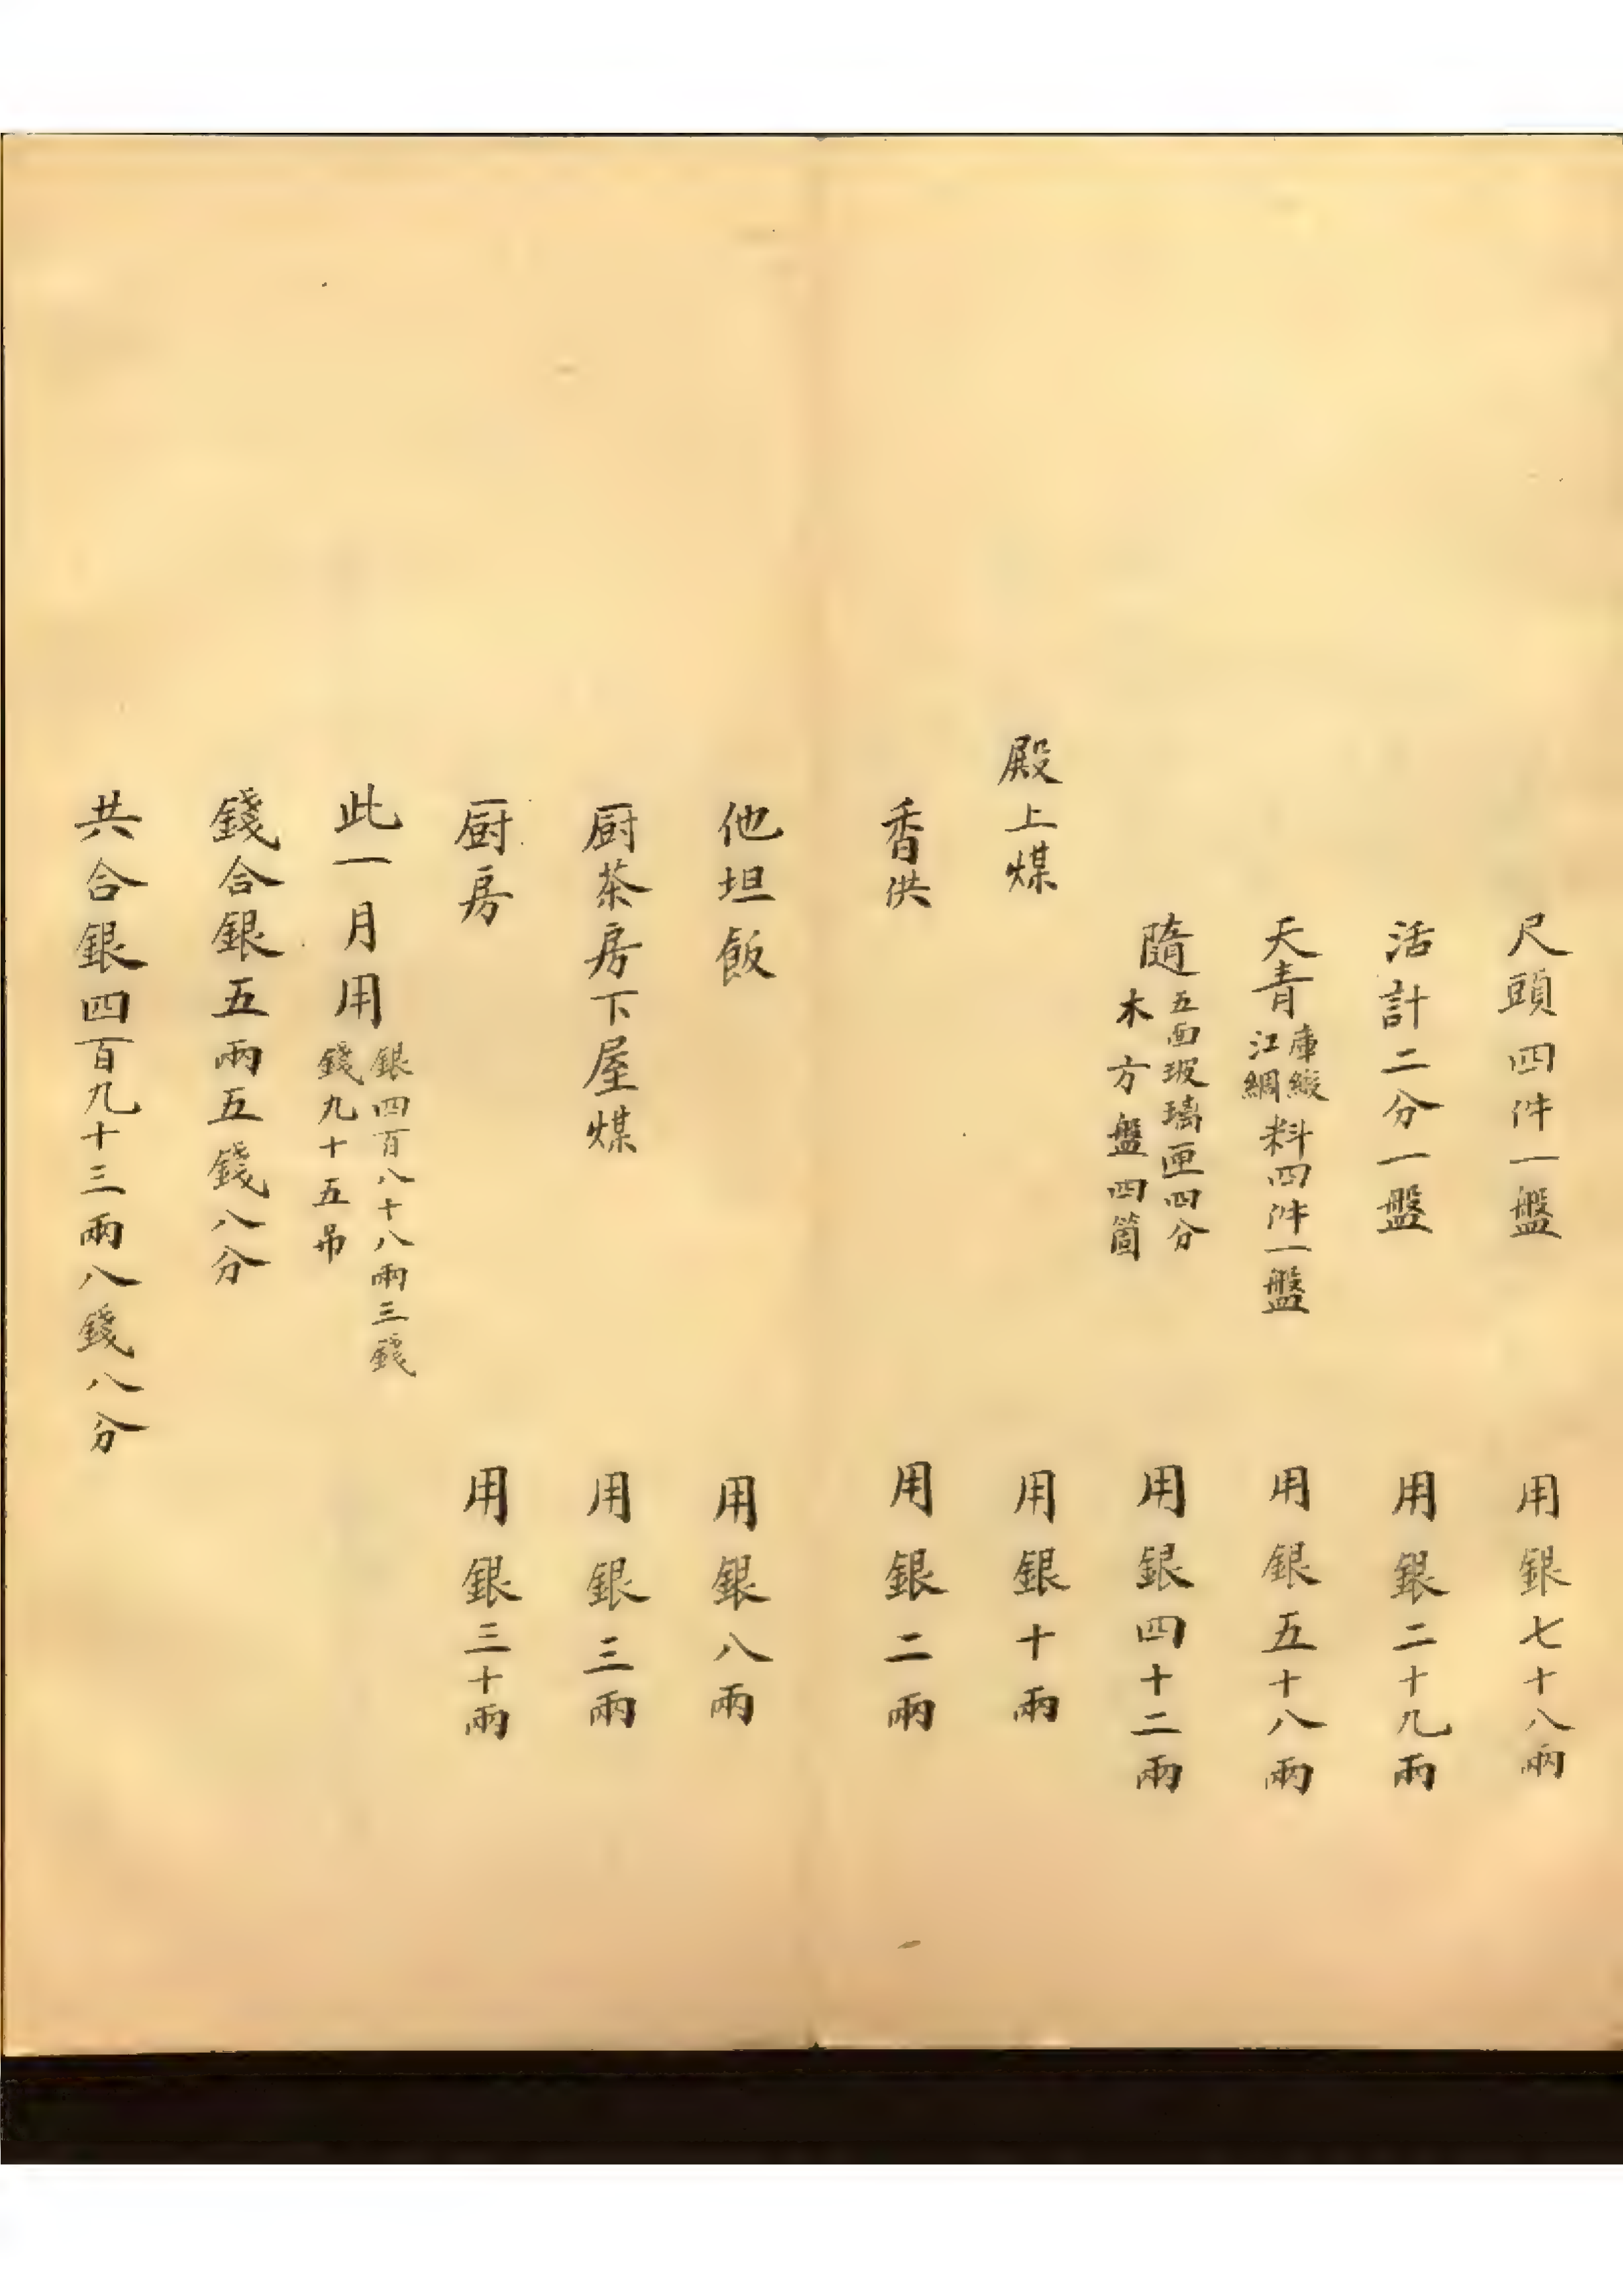 尺頭四件一盤 用銀七十八兩
活計二分一盤 用銀二十九兩
天青庫緞江綢料四件一盤 用銀五十八兩
隨五面玻璃匣四分木方盤四箇 用銀四十二兩
殿上煤 用銀十兩
香供 用銀二兩
他坦飯 用銀八兩
厨茶房下屋煤 用銀三兩
厨房 用銀三十兩
此一月用銀四百八十八兩三錢錢九十五吊
錢合銀五兩五錢八分
共合銀四百九十三兩八錢八分